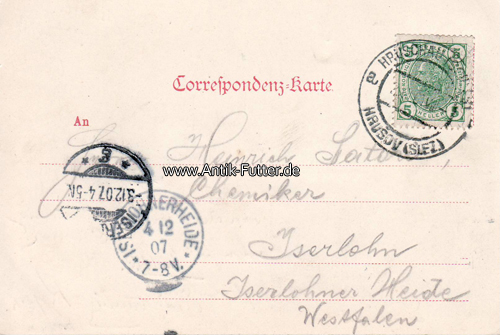 Correspondenz-Karte.
HRUSCHAU
HRUŠOV (SLEZ)
5 5
An
Heinrich
www.Antik-Futter.de
Chemiker
3.12.07.4-5N.
ISERLOHNERHEIDE
4 12
07
7-8V.
Iserlohn
Iserlohner Heide
Westfalen